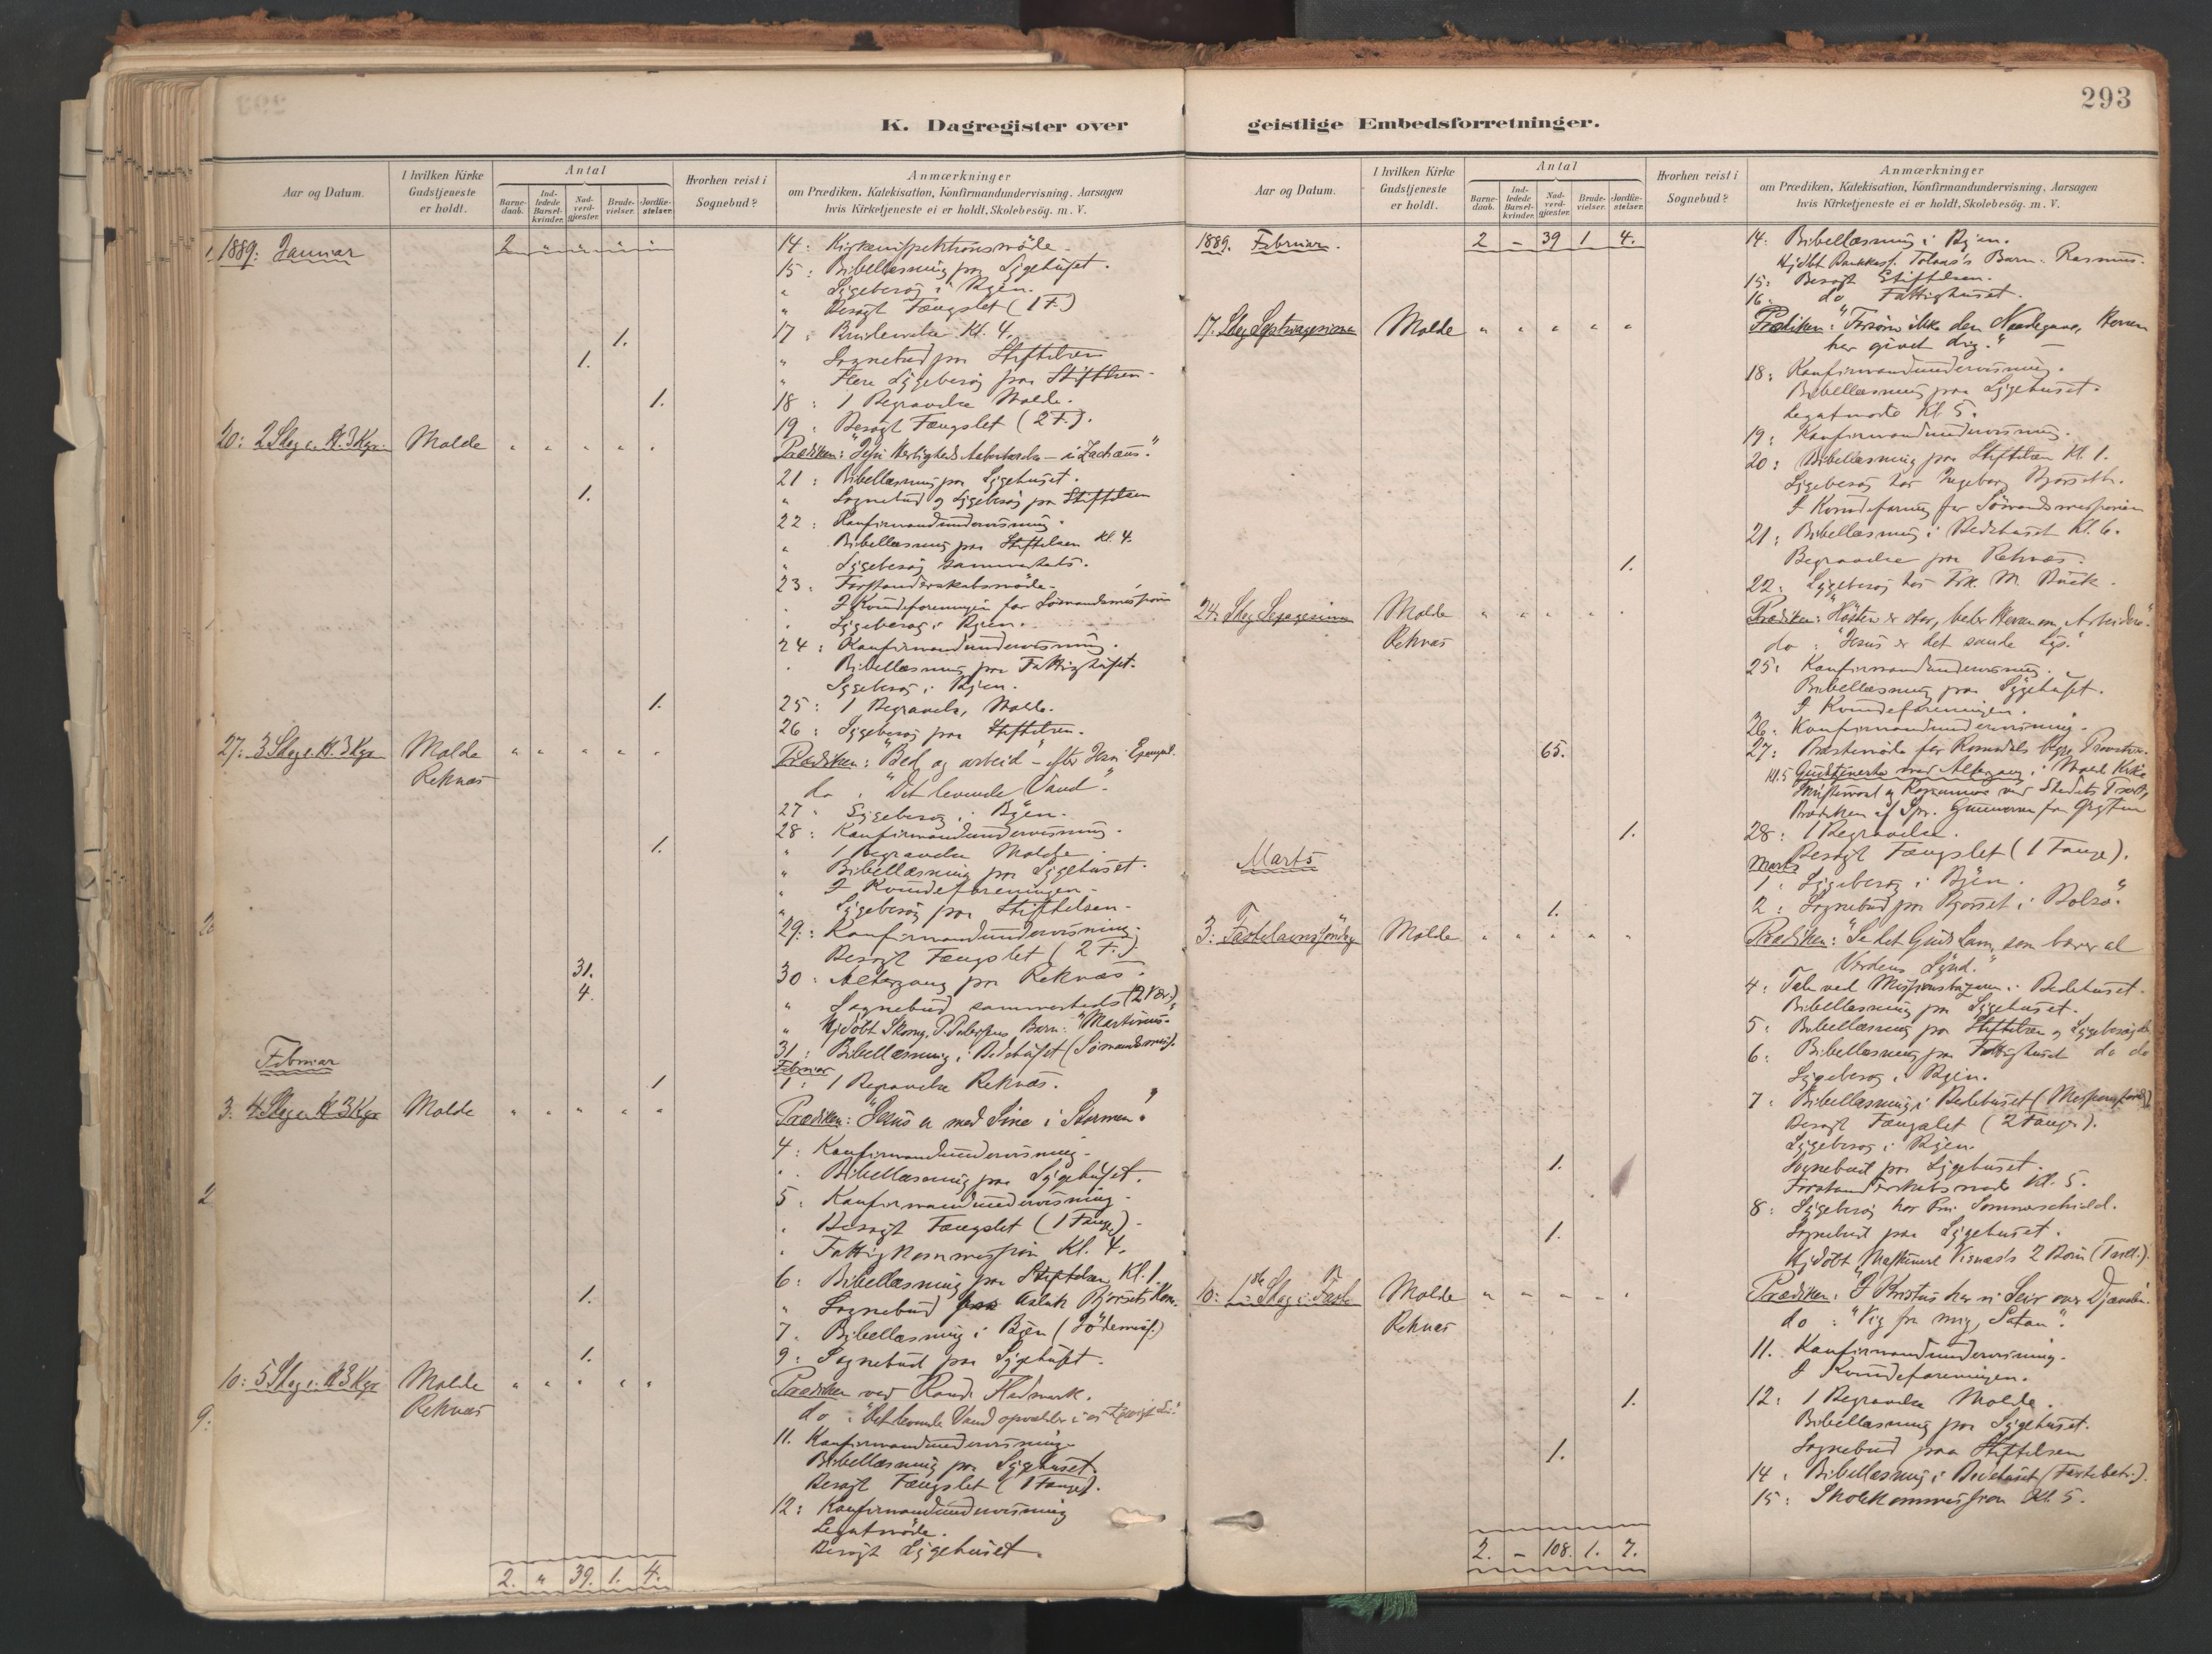 293
K. Dagregister over
Aar og Datum.
I hvilken Kirke Gudstjeneste er holdt.
Antal
Barnedaab.
Indledede Barselkvinder.
Nadverdgjæster.
Brudevielser.
Jordfæstelser.
Hvorhen reist i Sognebud?
Anmærkninger
om Prædiken, Katekisation, Konfirmandundervisning, Aarsagen
hvis Kirketjeneste ei er holdt, Skolebesög. m. V.
1889: Januar 2 " " " "
14: Kirkeinspektionsmöde.
15: Bibellæsning paa Sygehuset.
" Sygebesög i Byen.
" Besögt Fængslet (1 F.)
1. 17: Brudevielse Kl. 4.
1. " Sognebud paa Stiftelsen
" Flere Sygebesög paa Stiftelsen.
1. 18: 1 Begravelse Molde.
19: Besögt Fængslet (2 F.).
20: 2 Søg e. H. 3 Kgr. Molde " " " " "
Prædiken: "Jesu Herligheds Aabenbarelse - i Zachæus."
21: Bibellæsning paa Sygehuset.
1. " Sognebud og Sygebesög paa Stiftelsen
22: Konfirmandundervisning.
" Bibellæsning paa Stiftelsen Kl. 4.
" Sygebesög sammesteds.
23: Forstanderskabsmöde.
I Kvindeforeningen for Sömandsmissionen
Sygebesög i Byen.
24: Konfirmandundervisning.
Bibellæsning paa Fattighuset.
Sygebesög i Byen.
1. 25: 1 Begravelse, Molde.
26: Sygebesög paa Stiftelsen.
27: 3 Søg e. H. 3 Kgr Molde " " " " "
Prædiken: "Bed og arbeid" - efter Jesu Exempel.
Reknæs do : "Det levende Vand".
27 " Sygebesög i Byen.
28: Konfirmandundervisning.
1. " 1 Begravelse Molde.
" Bibellæsning paa Sygehuset.
" I Kvindeforeningen.
" Sygebesög paa Stiftelsen.
29: Konfirmandundervisning.
Besögt Fængslet (2 F.).
31. 30: Altergang paa Reknæs.
4. " Sognebud sammesteds (2 Vær.)
" Hjdöbt Skomg. P. Pedersens Barn: "Martinus".
31: Bibellæsning i Bedehuset (Sömandsmis.
Februar
Februar
1 1: 1 Begravelse Reknæs.
3: 4 Søg e H 3 Kgr Molde " " " " "
Prædiken: "Jesus er med Sine i Stormen."
4: Konfirmandundervisning.
" Bibellæsning paa Sygehuset.
5: Konfirmandundervisning.
" Besögt Fængslet (1 Fange).
" Fattigkommission Kl. 4.
6: Bibellæsning paa Stiftelsen Kl. 1.
1. " Sognebud Aslak Bjørsets Kone.
7. Bibellæsning i Byen (Jödemis.)
1. 9: Sognebud paa Sygehuset.
10: 5 Søg e. H 3 Kgr Molde " " " " "
Prædiken ved Kand. Hedmark.
Reknæs do : "Det levende Vand opvælder i os til evigt Liv".
11. Konfirmandundervisning
Bibellæsning paa Sygehuset.
Besögt Fængslet (1 Fange).
12: Konfirmandundervisning
Legatmöde.
Besögt Sygehuset.
2. " 39. 1. 4.
geistlige Embedsforretninger.
Aar og Datum.
I hvilken Kirke Gudstjeneste er holdt.
Antal
Barnedaab.
Indledede Barselkvinder.
Nadverdgjæster.
Brudevielser.
Jordfæstelser.
Hvorhen reist i Sognebud?
Anmærkninger
om Prædiken, Katekisation, Konfirmandundervisning, Aarsagen
hvis Kirketjeneste ei er holdt, Skolebesög. m. V.
1889. Februar. 2 - 39 1 4.
14: Bibellæsning i Byen.
Hjdöbt Bankkass. Tolaas's Barn: Rasmus.
15: Besögt Stiftelsen.
16. do Fattighuset.
17. Søg Septuagesima Molde " " " " "
Prædiken: "Forsøm ikke den Naadegave, Herren
har givet dig."
18: Konfirmandundervisning.
Bibellæsning paa Sygehuset.
Legatmöde Kl 5.
19: Konfirmandundervisning.
20: Bibellæsning paa Stiftelsen Kl. 1.
Sygebesög hos Ingeborg Bjørseth.
I Kvindeforening for Sömandsmissionen
21: Bibellæsning i Bedehuset Kl. 6.
1. Begravelse paa Reknæs.
22: Sygebesög hos Frk. M. Buck.
24: Søg Sexagesima Molde " " " " "
Prædiken: "Hösten er stor, beder Herren om Arbeidere".
Reknæs do : "Jesus er det sande Lys."
25: Konfirmandundervisning.
Bibellæsning paa Sygehuset.
I Kvindeforeningen.
26. Konfirmandundervisning.
65. 27: Præstemöde for Romsdals Provsti.
Kl. 5 Gudstjeneste med Altergang i Molde Kirke
Prædiken af Spr. Gunnerson fra Grytten
1. 28: 1 Begravelse.
Besögt Fængslet (1 Fange).
Marts
Marts
1: Sygebesög i Byen.
1. 2: Sognebud paa Bjørset i Bolsö.
3: Fastelavnssöndag Molde " " " " "
Prædiken: "Se det Guds Lam, som bærer al
Verdens Synd."
4: Tale ved Missionsbazaren i Bedehuset.
Bibellæsning paa Sygehuset.
5: Bibellæsning paa Stiftelsen og Sygebesög do
6: Bibellæsning paa Fattighuset do do
Sygebesög i Byen.
7: Bibellæsning i Bedehuset
Besögt Fængslet (2 Fanger).
Sygebesög i Byen
1. Sognebud paa Sygehuset.
Forstanderskabsmöde Kl. 5.
8: Sygebesög hos Fru Sommerschield.
1. Sognebud paa Sygehuset.
Hjdöbt Maskinist Visnæs's 2 Börn (Tvill.).
10: 1ste Søg i Faste Molde " " " " "
Prædiken: "I Kristus har vi Seir over Djævelen.
Reknæs do : "Vig fra mig, Satan".
11. Konfirmandundervisning.
I Kvindeforeningen.
1. 12: 1 Begravelse Molde.
Bibellæsning paa Sygehuset.
1. Sognebud paa Stiftelsen
14: Bibellæsning i Bedehuset (Fastebetr.).
15: Skolekommission Kl. 5.
2. - 108. 1. 7.